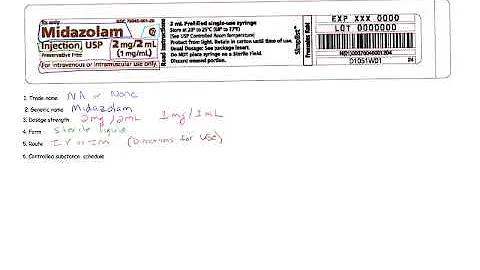 Rx only
Midazolam
Injection, USP
Preservative Free
2 mg/2 mL
(1 mg/mL)
For intravenous or intramuscular use only.
Read Instructions
2 mL Prefilled single-use syringe
Store at 20° to 25°C (68° to 77°F)
[See USP Controlled Room Temperature]
Protect from light. Retain in carton until time of use.
Usual Dosage: See package insert.
Do NOT place syringe on a Sterile Field.
Discard unused portion.
Simplist®
Fresenius Kabi
EXP XXX 0000
LOT 0000000
D1051W01
1. Trade name NA or None
2. Generic name Midazolam
3. Dosage strength 2mg/2mL 1mg/1mL
4. Form sterile liquid
5. Route IV or IM (Directions for use)
6. Controlled substance schedule